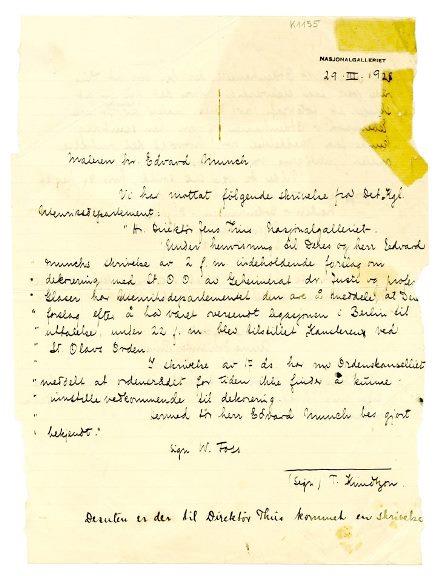 K1195
NASJONALGALLERIET
29. III. 1928
Maleren hr. Edvard Munch
Vi har mottat følgende skrivelse fra Det Kgl.
Utenriksdepartement:
"Hr. Direktør Jens Thiis Nasjonalgalleriet.
Under henvisning til Deres og herr Edvard
Munchs skrivelse av 2 f. m. indeholdende forslag om
" dekorering med St. O. O. av Geheimerat dr. Justi og profes.
" Glaser har Utenriksdepartementet den ære å meddele, at Deres
" forslag efter å ha været oversendt Legasjonen i Berlin til
" uttalelse, under 22 f. m. blev tilstillet Kansleren ved
" St. Olavs Orden.
" I skrivelse av 17 ds har nu Ordenskanselliet
" meddelt at ordensrådet for tiden ikke finder å kunne
" innstille vedkommende til dekorering.
" herr Edvard Munch bes gjort
" bekjendt."
sign W. Foss
(sign) T. Knudtzon.
Desuten er der til Direktør Thiis kommet en skrivelse